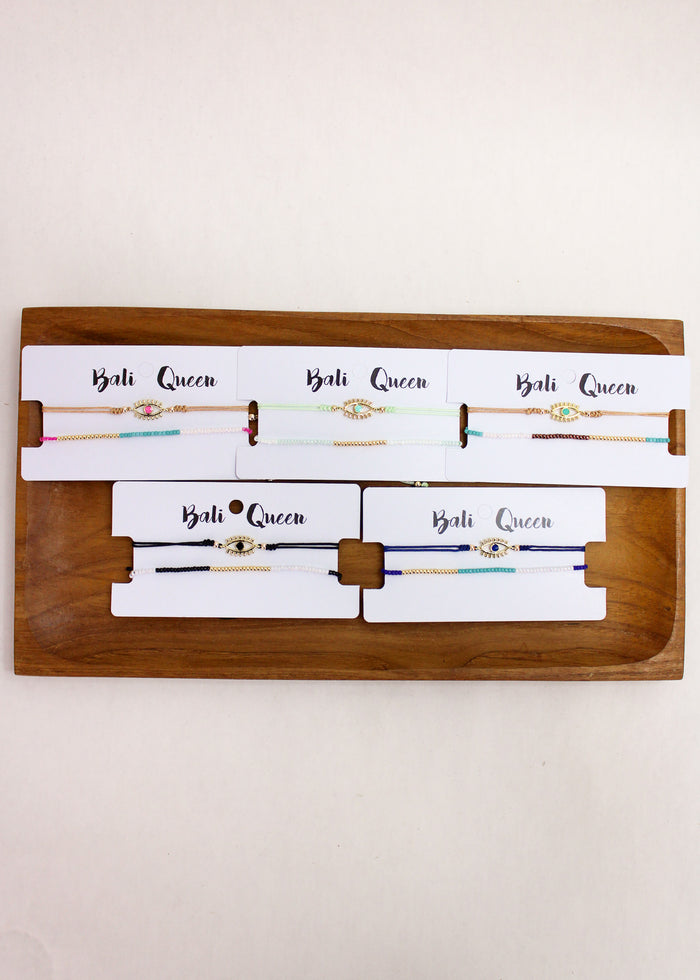 Bali Queen
Bali Queen
Bali Queen
Bali Queen
Bali Queen